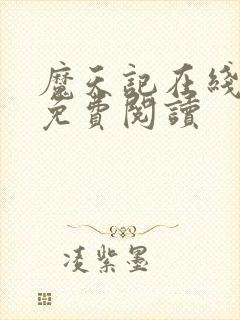 魔天記在綫
免費閱讀
凌紫墨